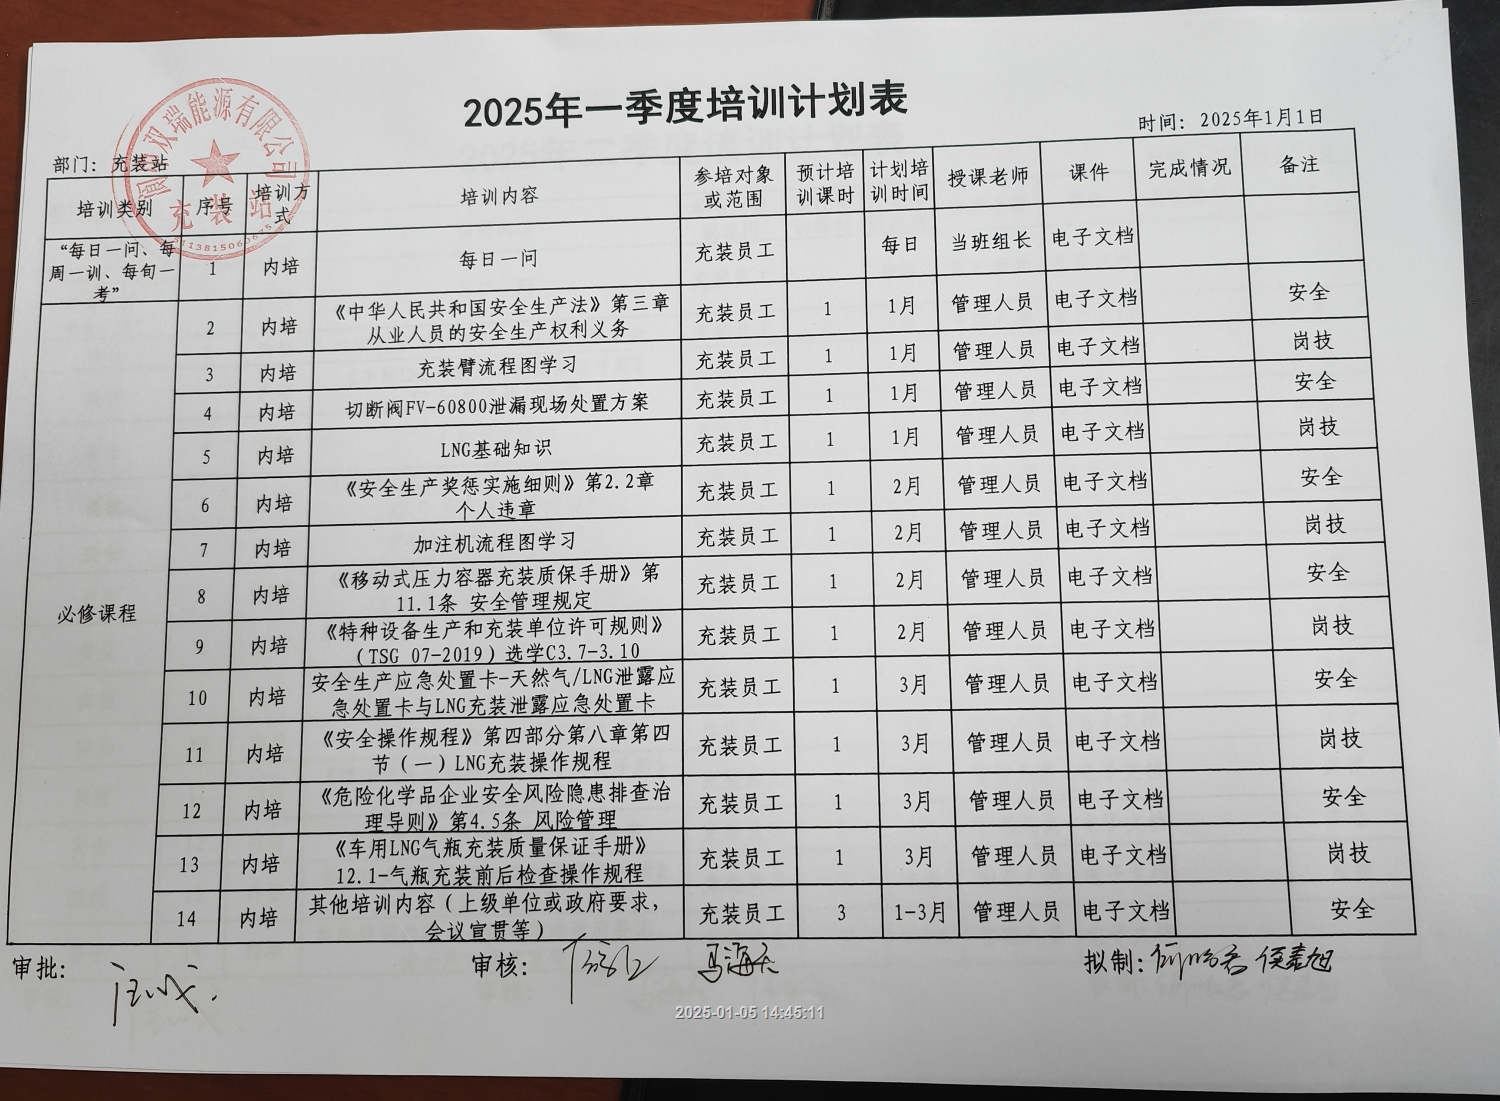 2025年一季度培训计划表
部门：充装站
时间：2025年1月1日
双瑞能源有限公司
充装站
培训类别 序号 培训方式 培训内容 参培对象或范围 预计培训课时 计划培训时间 授课老师 课件 完成情况 备注
“每日一问、每周一训、每旬一考” 1 内培 每日一问 充装员工 每日 当班组长 电子文档
必修课程
2 内培 《中华人民共和国安全生产法》第三章从业人员的安全生产权利义务 充装员工 1 1月 管理人员 电子文档 安全
3 内培 充装臂流程图学习 充装员工 1 1月 管理人员 电子文档 岗技
4 内培 切断阀FV-60800泄漏现场处置方案 充装员工 1 1月 管理人员 电子文档 安全
5 内培 LNG基础知识 充装员工 1 1月 管理人员 电子文档 岗技
6 内培 《安全生产奖惩实施细则》第2.2章 个人违章 充装员工 1 2月 管理人员 电子文档 安全
7 内培 加注机流程图学习 充装员工 1 2月 管理人员 电子文档 岗技
8 内培 《移动式压力容器充装质保手册》第11.1条 安全管理规定 充装员工 1 2月 管理人员 电子文档 安全
9 内培 《特种设备生产和充装单位许可规则》（TSG 07-2019）选学C3.7-3.10 充装员工 1 2月 管理人员 电子文档 岗技
10 内培 安全生产应急处置卡-天然气/LNG泄露应急处置卡与LNG充装泄露应急处置卡 充装员工 1 3月 管理人员 电子文档 安全
11 内培 《安全操作规程》第四部分第八章第四节（一）LNG充装操作规程 充装员工 1 3月 管理人员 电子文档 岗技
12 内培 《危险化学品企业安全风险隐患排查治理导则》第4.5条 风险管理 充装员工 1 3月 管理人员 电子文档 安全
13 内培 《车用LNG气瓶充装质量保证手册》12.1-气瓶充装前后检查操作规程 充装员工 1 3月 管理人员 电子文档 岗技
14 内培 其他培训内容（上级单位或政府要求，会议宣贯等） 充装员工 3 1-3月 管理人员 电子文档 安全
审批：
审核： 马海天
拟制：
2025-01-05 14:45:11